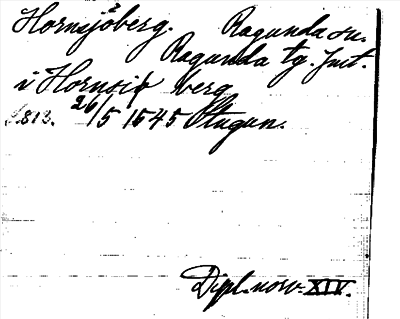 Hornsjöberg. Ragunda sn.
Ragunda tg. Jmt.
i Hornsiø berg
S. 813. 26/5 1645 Stugun.
Dipl. norv. XIV.